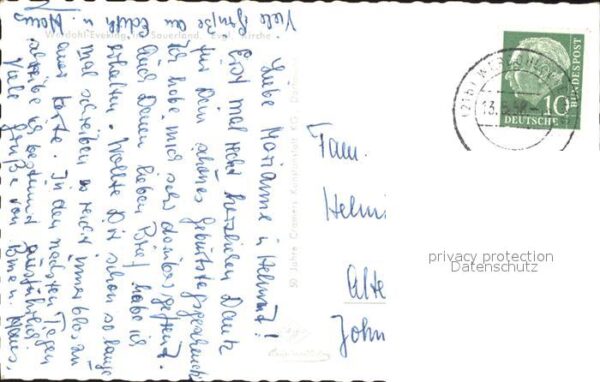 Werdohl-Eveking im Sauerland Evgl. Kirche
Liebe Marianne u Helmut!
Erst mal recht herzlichen Dank
für Dein schönes Geburtstagsgeschenk
Ich habe mich sehr darüber gefreut.
Auch Deinen lieben Brief habe ich
erhalten. Wollte Dir schon so lange
mal schreiben es reicht immer blos zu
einer Karte. In den nächsten Tagen
schreibe ich bestimmt ausführlich
Viele Grüße von
Viele Grüße an Edith u. Klaus
50 Jahre Cramers Kunstanstalt KG Dortmund
Fam.
Helm
Alte
John
(21b) WERDOHL
13.
10
DEUTSCHE
BUNDESPOST
privacy protection
Datenschutz